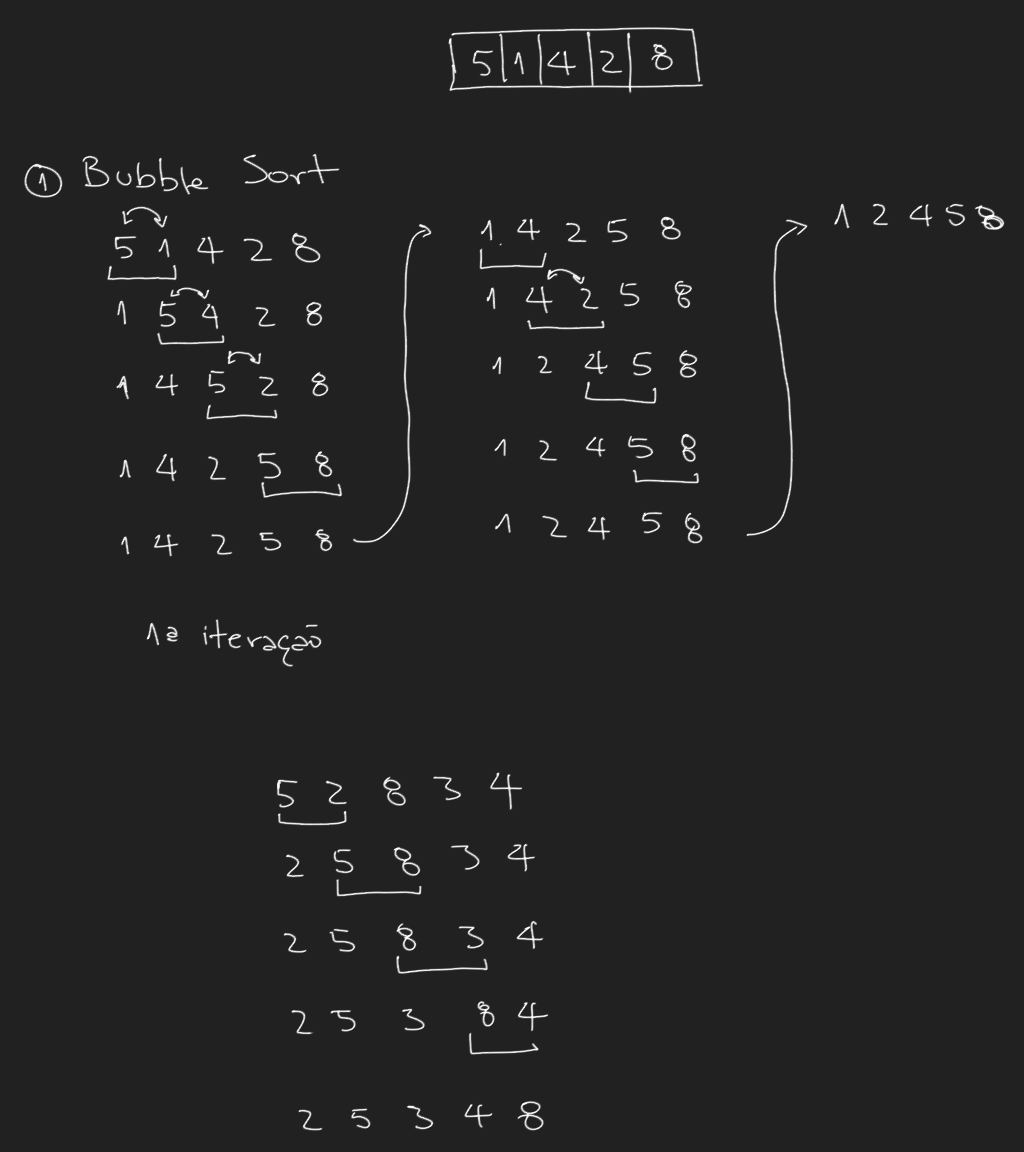 5 1 4 2 8
① Bubble Sort
5 1 4 2 8
1 5 4 2 8
1 4 5 2 8
1 4 2 5 8
1 4 2 5 8
1ª iteração
1 4 2 5 8
1 4 2 5 8
1 2 4 5 8
1 2 4 5 8
1 2 4 5 8
1 2 4 5 8
5 2 8 3 4
2 5 8 3 4
2 5 8 3 4
2 5 3 8 4
2 5 3 4 8